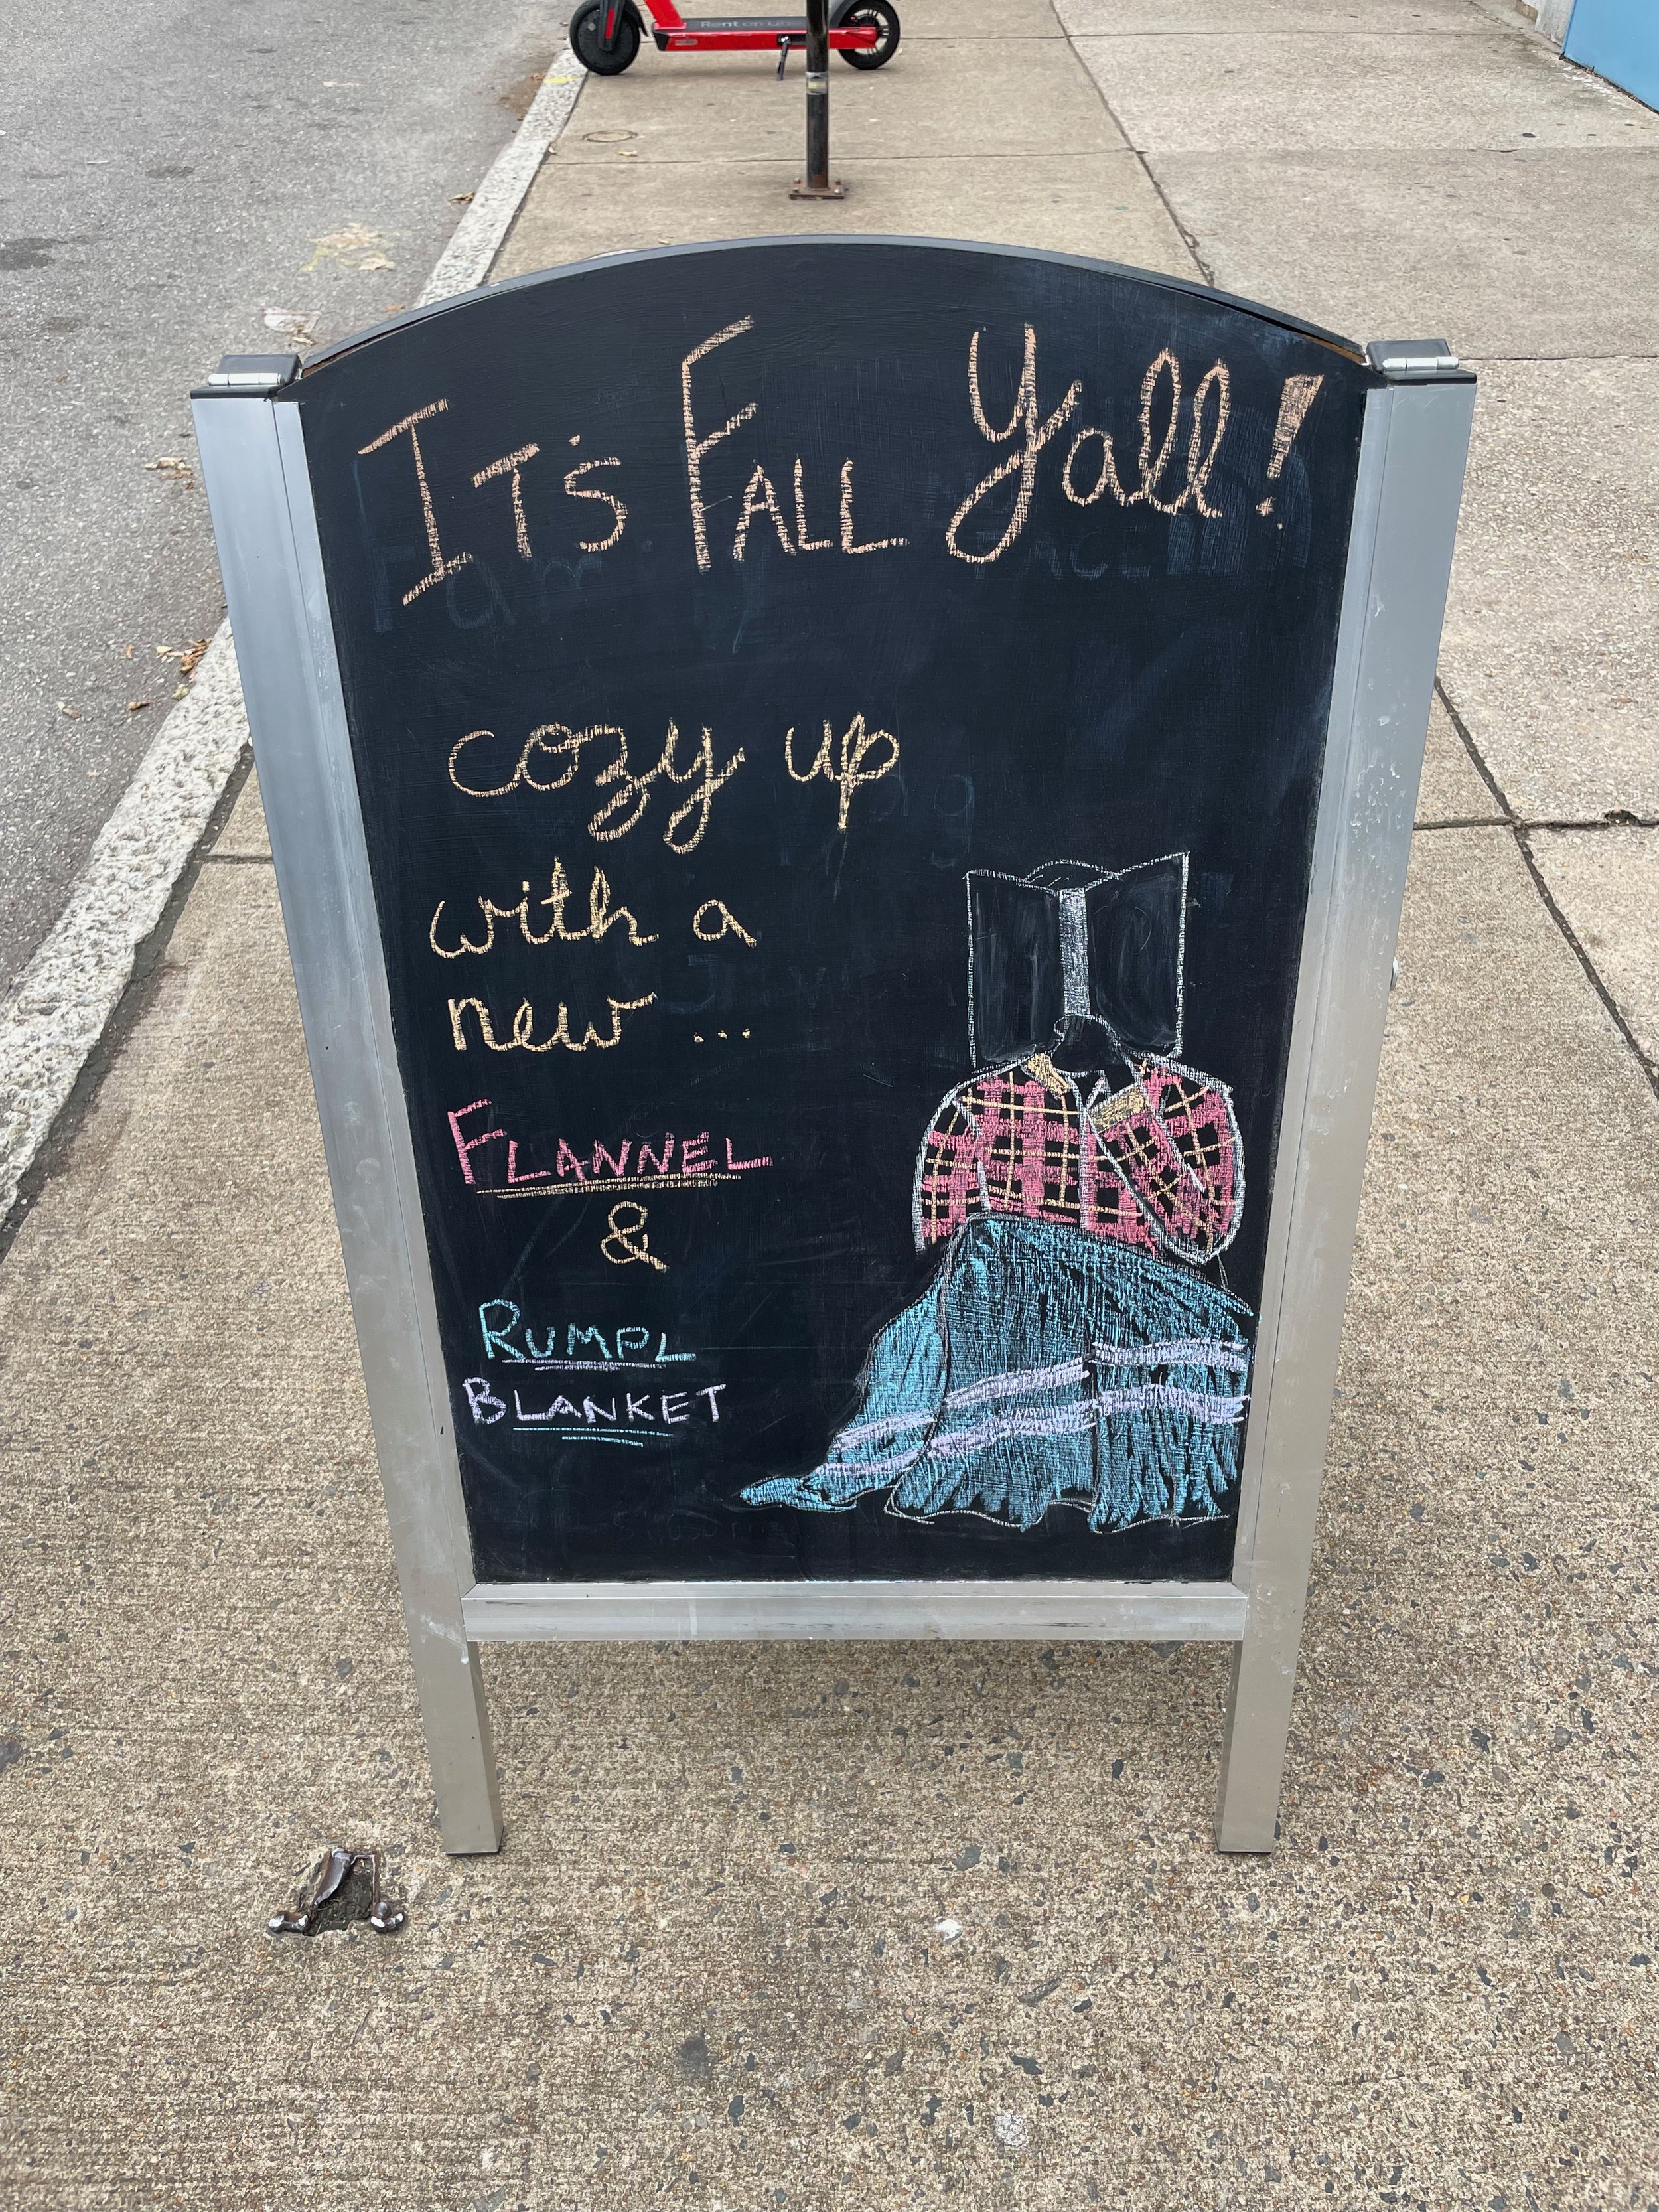 Rent on Uber
IT'S FALL Yall!
cozy up
with a
new ...
FLANNEL
&
RUMPL
BLANKET